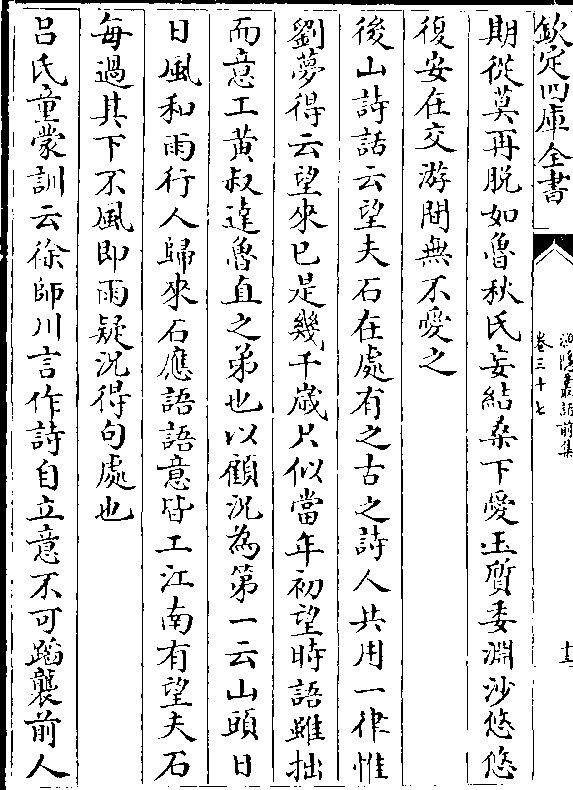 欽定四庫全書
漁隱叢話前集
卷三十七
期從莫再脱如魯秋氏妄結桑下愛玉質委淵沙悠悠
復安在交游間無不愛之
後山詩話云望夫石在處有之古之詩人共用一律惟
劉夢得云望來已是幾千歲只似當年初望時語雖拙
而意工黄叔達魯直之弟也以顧況為第一云山頭日
日風和雨行人歸來石應語語意皆工江南有望夫石
每過其下不風即雨疑況得句處也
吕氏童蒙訓云徐師川言作詩自立意不可蹈襲前人